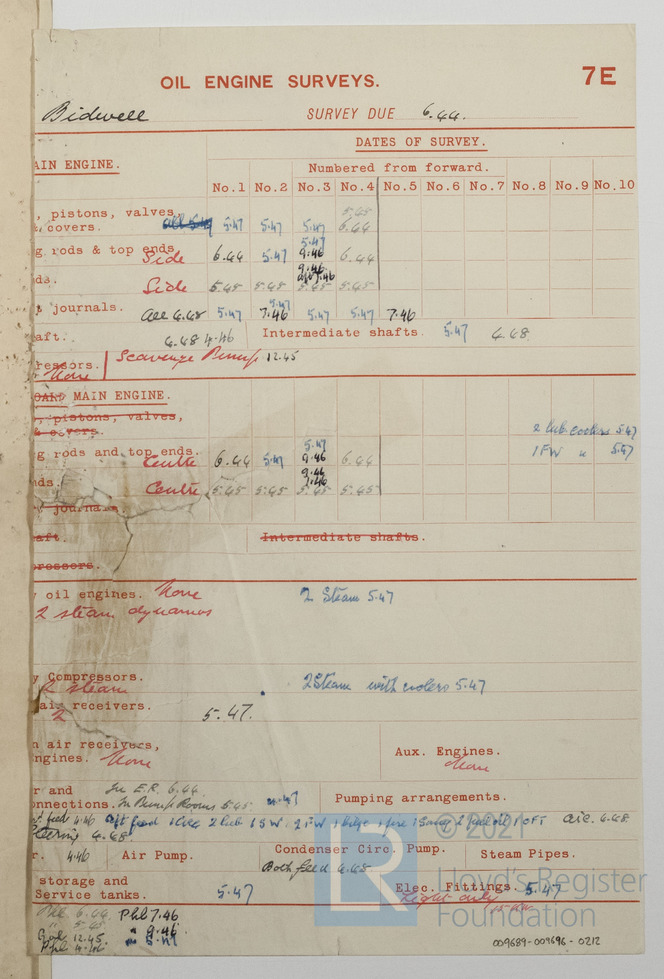 OIL ENGINE SURVEYS. 7E
Bidwell SURVEY DUE 6.44.
DATES OF SURVEY.
AIN ENGINE. Numbered from forward.
No.1 No.2 No.3 No.4 No.5 No.6 No.7 No.8 No.9 No.10
5.45
, pistons, valves,
& covers. 5.47 5.47 5.47 6.44
5.47
g rods & top ends. Side 6.44 5.47 9.46 6.44
9.46
ds. Side 5.45 5.45 5.45 5.45
5.47
journals. all 4.48 5.47 7.46 5.47 5.47 7.46
aft. 4.48 4.46 Intermediate shafts. 5.47 4.48
ressors. Scavenge Pump 12.45
None
OARD MAIN ENGINE.
, pistons, valves,
& covers. 2 lub. coolers 5.47
5.47
g rods and top ends. Centre 6.44 5.47 9.46 6.44 1 FW " 5.47
9.46
7.46
ds. Centre 5.45 5.45 5.45 5.45
journals.
aft. Intermediate shafts.
pressors.
y oil engines. None 2 Steam 5.47
2 steam dynamos
y Compressors.
2 steam 2 Steam with coolers 5.47
air receivers.
2 5.47.
n air receivers,
ngines. None Aux. Engines.
None
r and In E.R. 6.44
onnections. In Pump Rooms 5.45 5.47 Pumping arrangements.
feed 4.46 feed 2 lub 1 SW 2 FW 1 bilge 1 fire all 4.48
Steering 4.48
r. 4.46 Air Pump. Condenser Circ. Pump. Steam Pipes.
Both feed 4.48
storage and
Service tanks. 5.47 Elec. Fittings. 5.47
Light only
Phl 6.44 Phl 7.46
" 5.45 " 9.46
12.45 " 5.47
Phl 4.46
© 2021
LR
Lloyd's Register
Foundation
009689-009696-0212